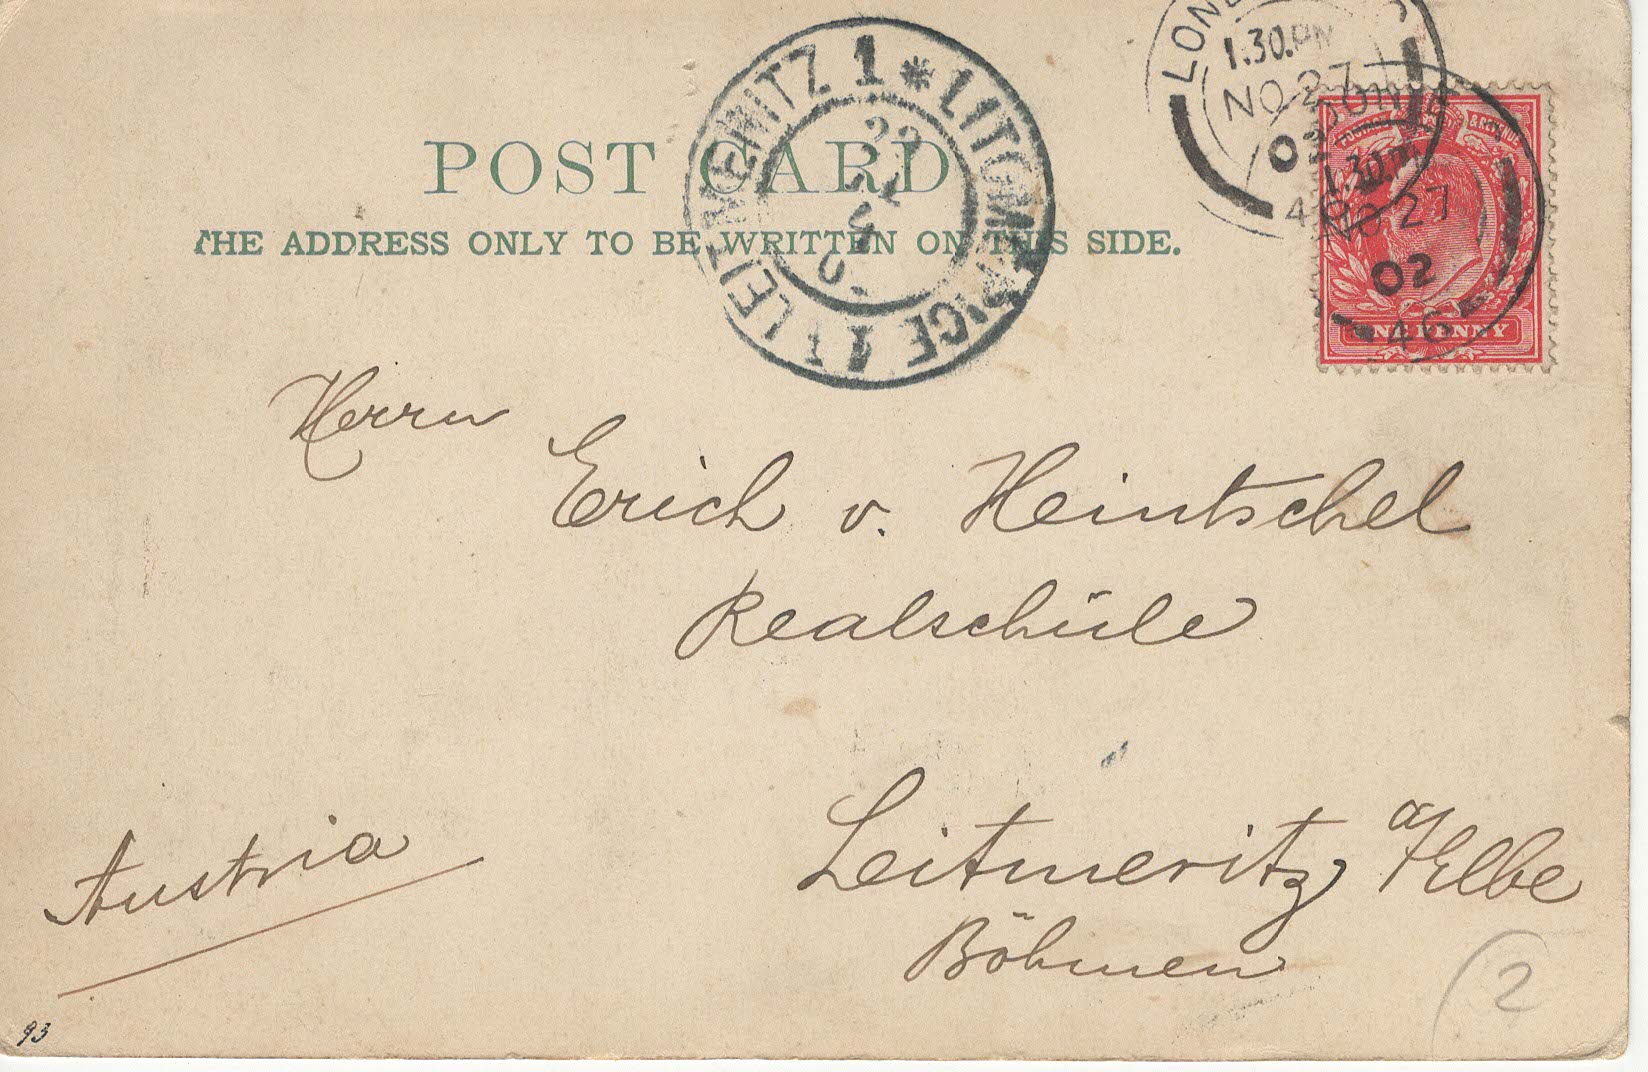 POST CARD
THE ADDRESS ONLY TO BE WRITTEN ON THIS SIDE.
LEITMERITZ 1 * LITOMĚŘICE 1
1.30.PM
NO 27
02
1.30.PM
NO 27
02
46
ONE PENNY
Herrn
Erich v. Heintschel
Realschüle
Leitmeritz a/Elbe
Böhmen
Austria
93
2